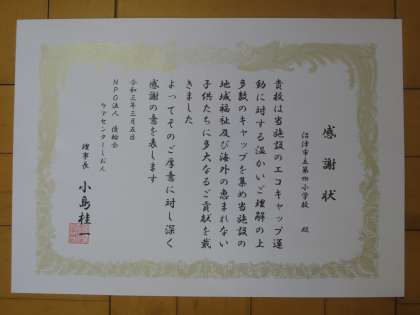 感謝状
沼津市立第四小学校 殿
貴校は当施設のエコキャップ運
動に対する温かいご理解の上
多数のキャップを集め当施設の
地域福祉及び海外の恵まれない
子供たちに多大なるご貢献を戴
きました
よってそのご厚意に対し深く
感謝の意を表します
令和三年三月五日
NPO法人 信輪会
ケアセンターしおん
理事長 小島桂一